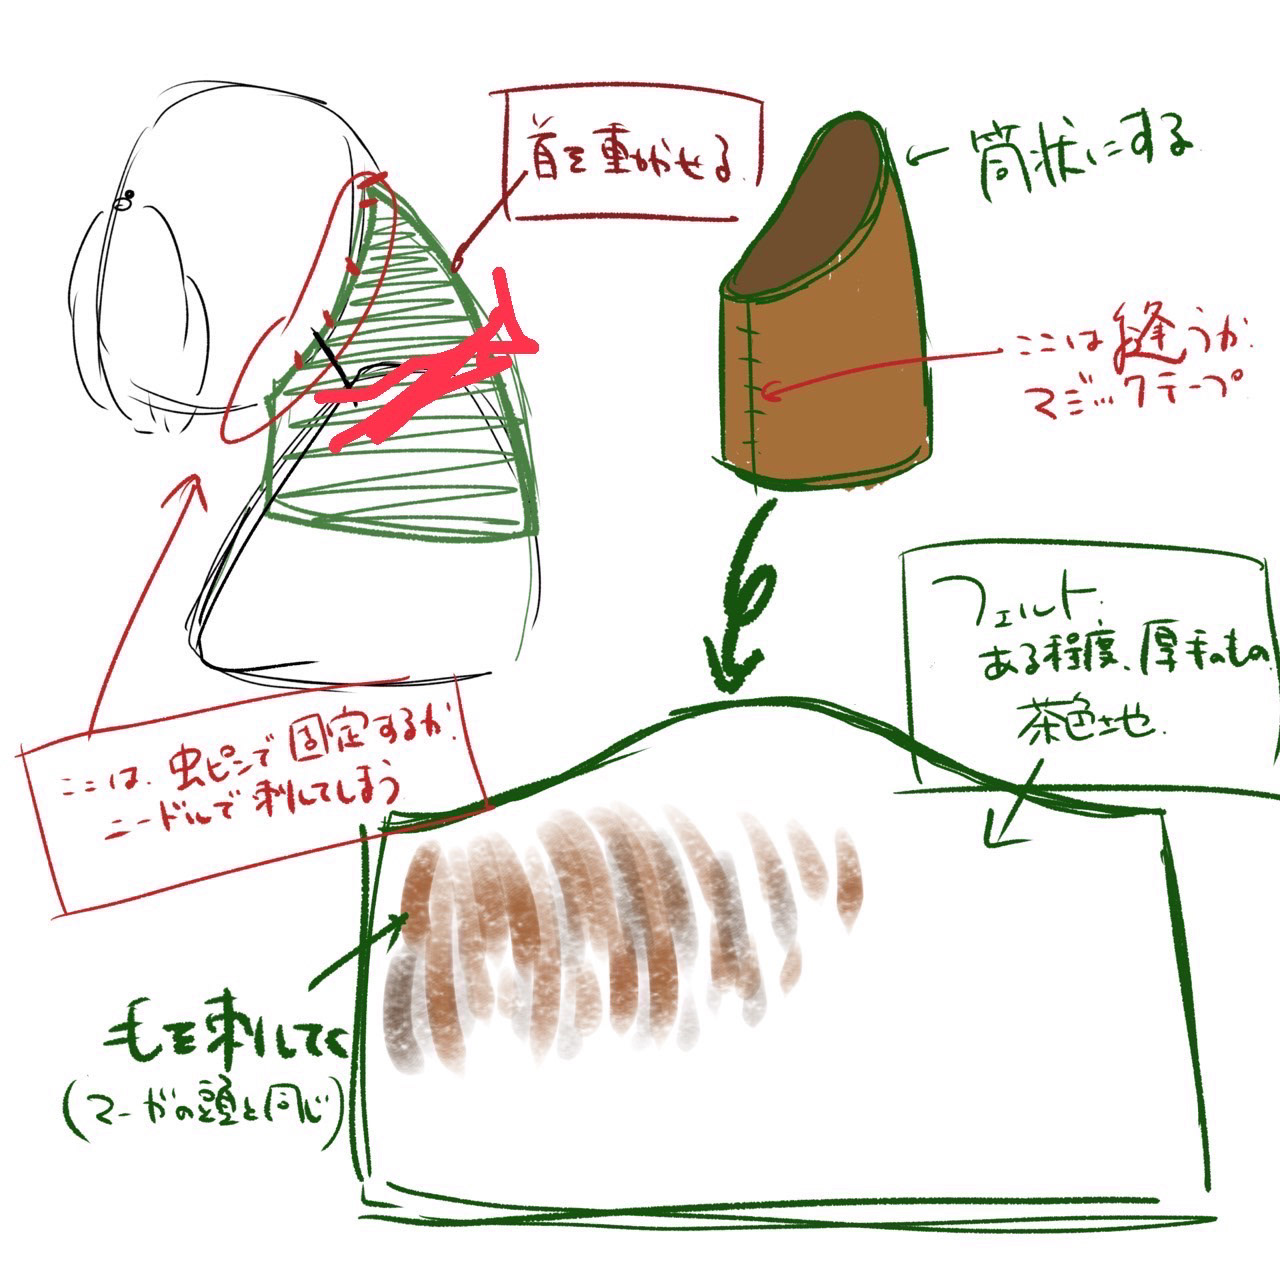 首を動かせる
筒状にする
ここは縫うか
マジックテープ
フェルト
ある程度、厚手のもの
茶色地
ここは、虫ピンで固定するか
ニードルで刺してしまう
毛を刺してく
(マーガの頭と同じ)